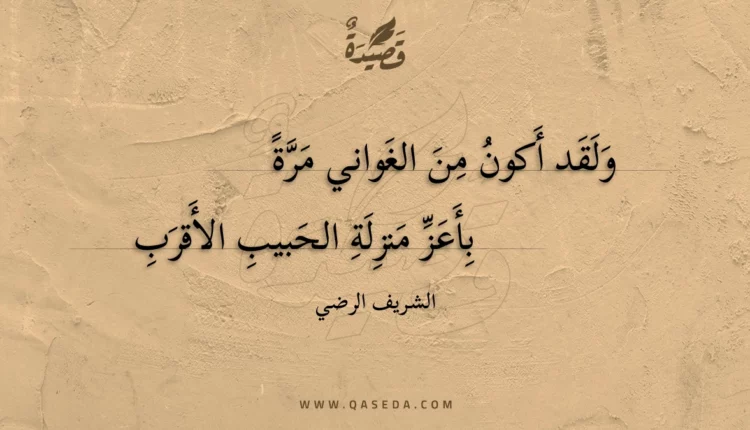 قَصِيدَةٌ
وَلَقَد أَكونُ مِنَ الغَواني مَرَّةً
بِأَعَزِّ مَنزِلَةِ الحَبيبِ الأَقرَبِ
الشريف الرضي
WWW.QASEDA.COM